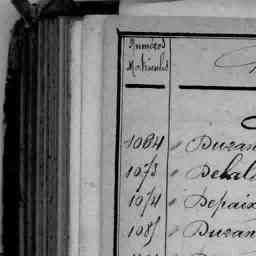 Numéros
Matricules
1064 " Duran
1073 " Delal
1074 " Depaix
1085 " Duran